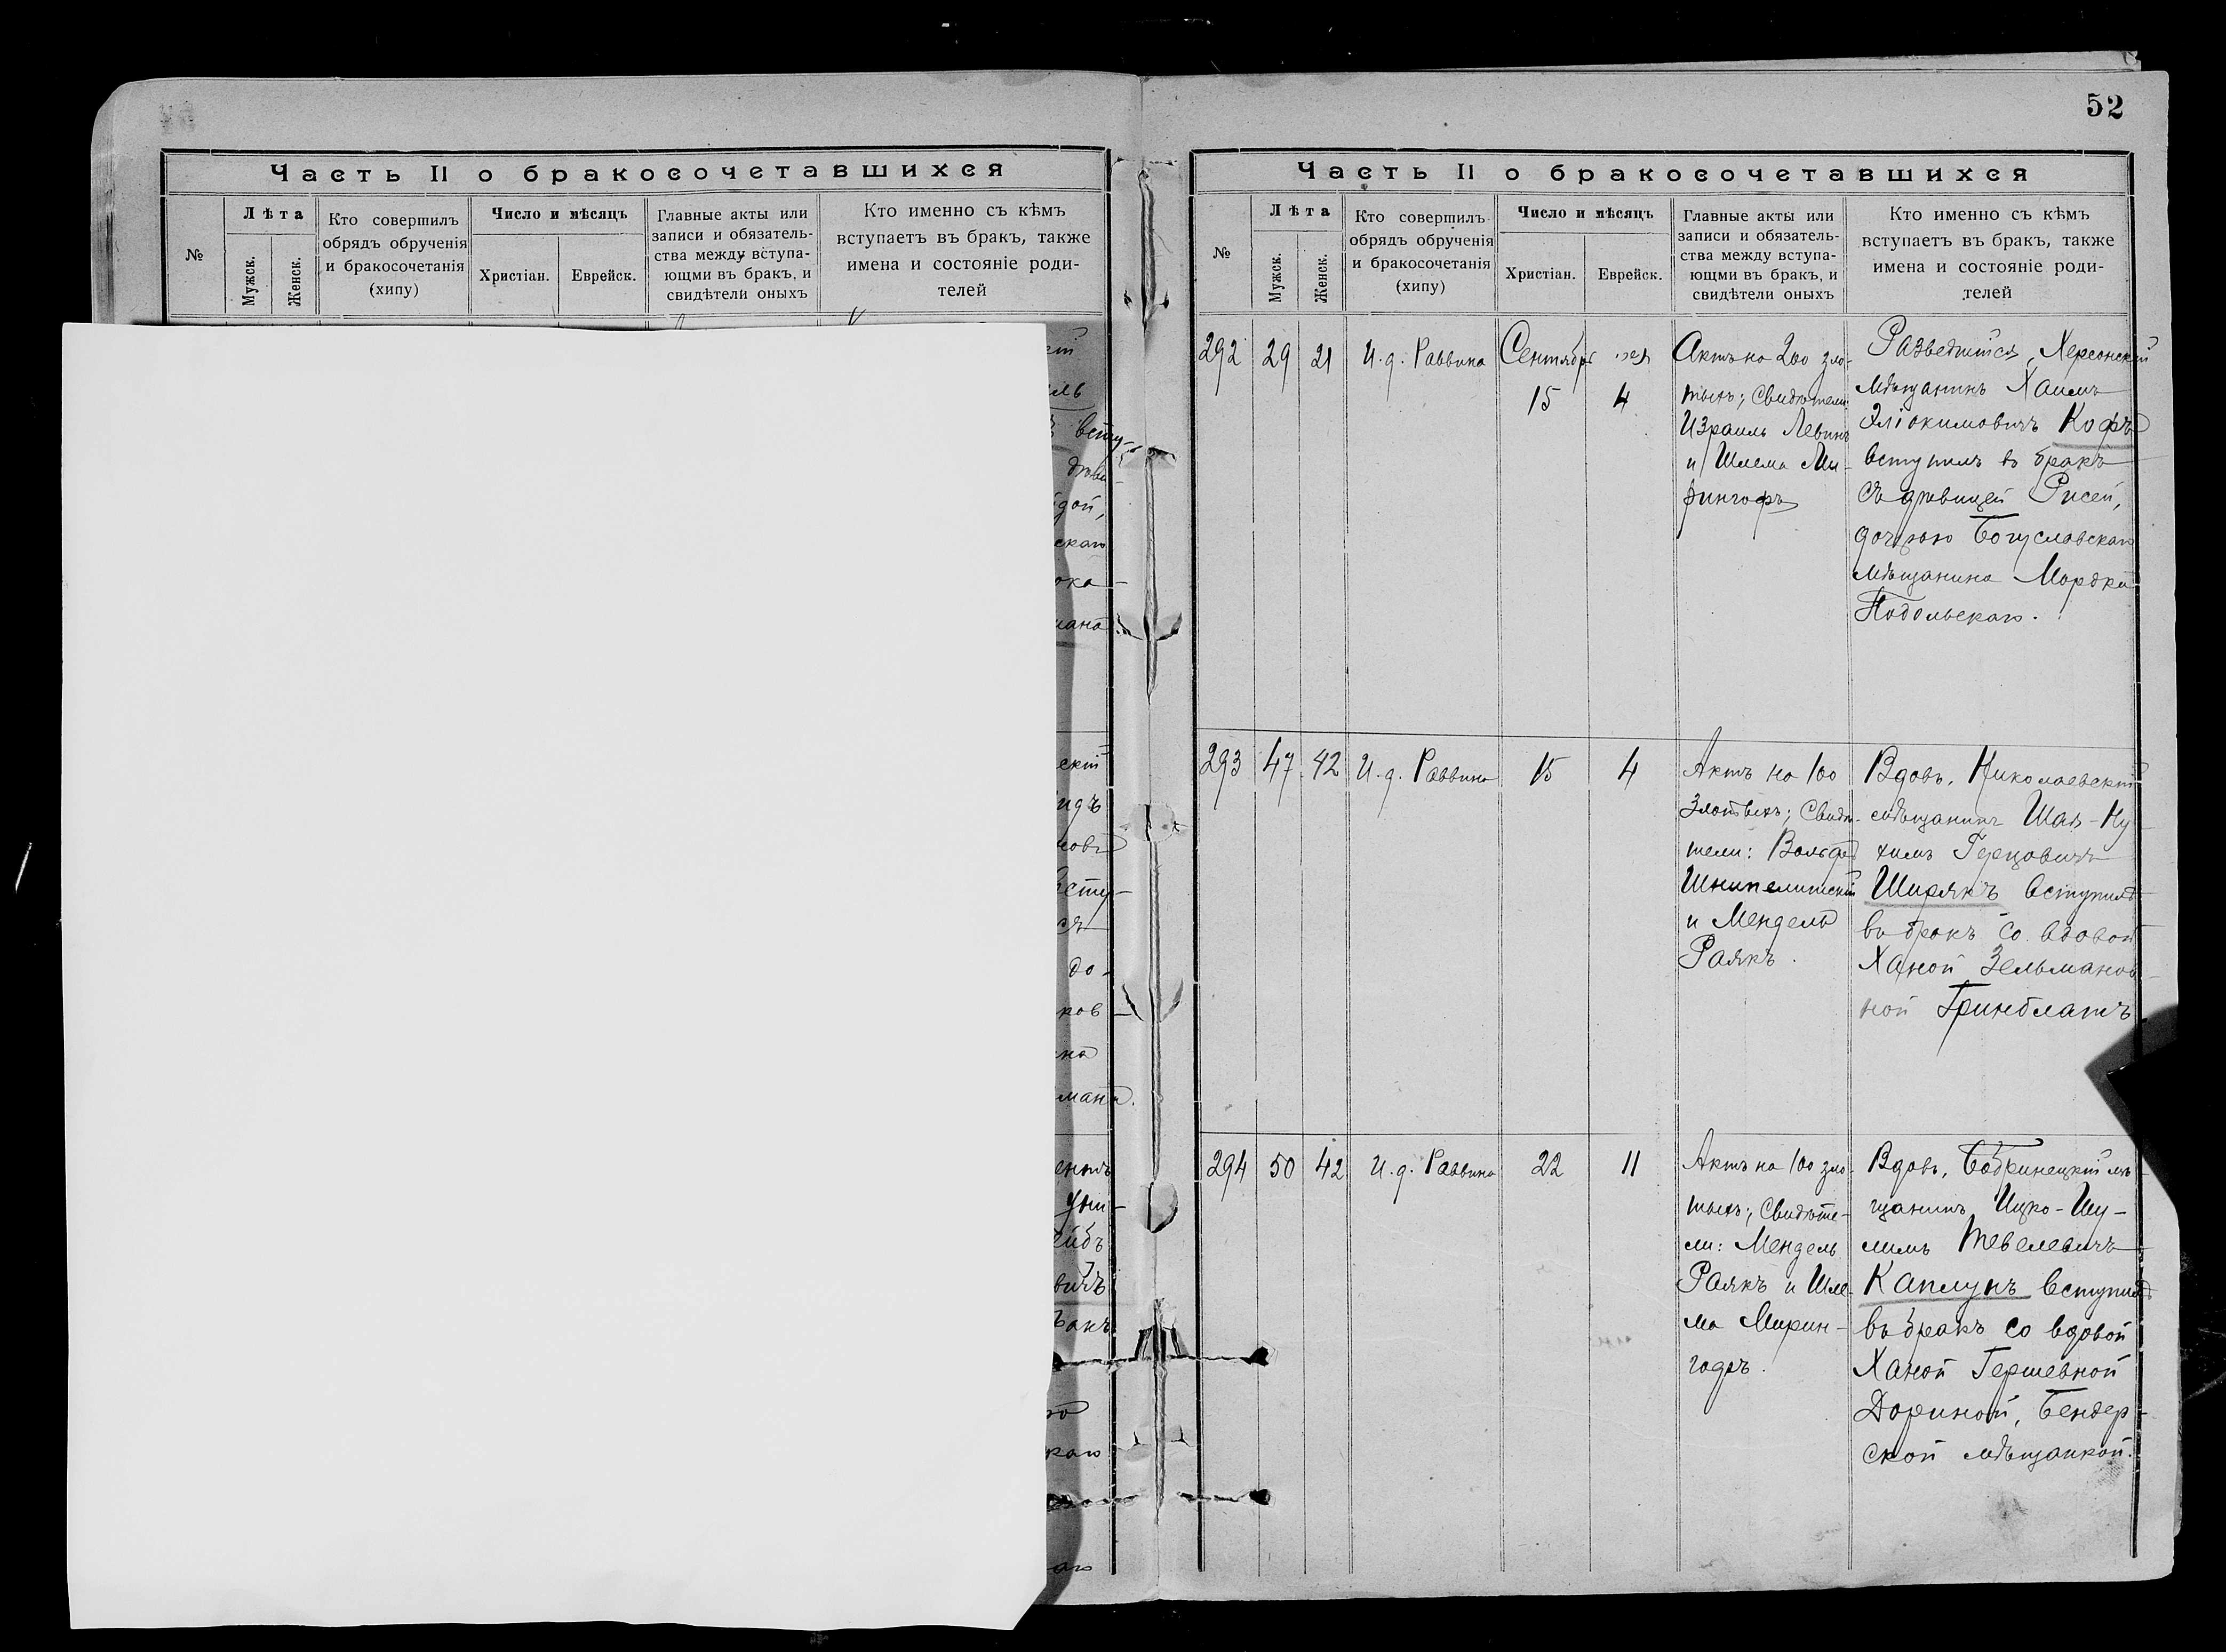 52
Часть II о бракосочетавшихся
№
Лѣта
Мужск.
Женск.
Кто совершилъ
обрядъ обрученія
и бракосочетанія
(хипу)
Число и мѣсяцъ
Христіан.
Еврейск.
Главные акты или
записи и обязатель-
ства между вступа-
ющми въ бракъ, и
свидѣтели оныхъ
Кто именно съ кѣмъ
вступаетъ въ бракъ, также
имена и состояніе роди-
телей
Часть II о бракосочетавшихся
№
Лѣта
Мужск.
Женск.
Кто совершилъ
обрядъ обрученія
и бракосочетанія
(хипу)
Число и мѣсяцъ
Христіан.
Еврейск.
Главные акты или
записи и обязатель-
ства между вступа-
ющми въ бракъ, и
свидѣтели оныхъ
Кто именно съ кѣмъ
вступаетъ въ бракъ, также
имена и состояніе роди-
телей
292 29 21 И.д. Раввина Сентябрь
15 4
Актъ на 200 зло-
тыхъ; Свидѣтели:
Израиль Левинъ
и Шлема Ми-
рингофъ
Разведшійся, Херсонскій
мѣщанинъ Хаимъ
Эліокимовичъ Кофъ
вступилъ въ бракъ
съ дѣвицей Рисей,
дочерью Богуславскаго
мѣщанина Мордка
Подольскаго.
293 47 42 И.д. Раввина 15 4
Актъ на 100
злотыхъ; Свидѣ-
тели: Вольфъ
Шнипелишскій
и Мендель
Раякъ.
Вдовъ, Николаевскій
мѣщанинъ Шая-Ну-
химъ Герцовичъ
Ширякъ вступилъ
въ бракъ со вдовой
Ханой Зельманов-
ной Гринблатъ
294 50 42 И.д. Раввина 22 11
Актъ на 100 зло-
тыхъ; Свидѣте-
ли: Мендель
Раякъ и Шле-
ма Мирин-
гофъ.
Вдовъ, Бобринецкій мѣ-
щанинъ Ицко-Шу-
лимъ Тевелевичъ
Каплунъ вступилъ
въ бракъ со вдовой
Ханой Гершевной
Дориной, Бендер-
ской мѣщанкой.